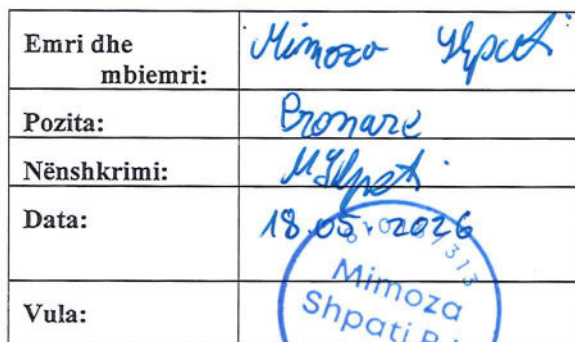 Emri dhe mbiemri: Mimoza Shpati
Pozita: Pronare
Nënshkrimi: MShpati
Data: 18.05.2026
Vula: Mimoza Shpati B.I